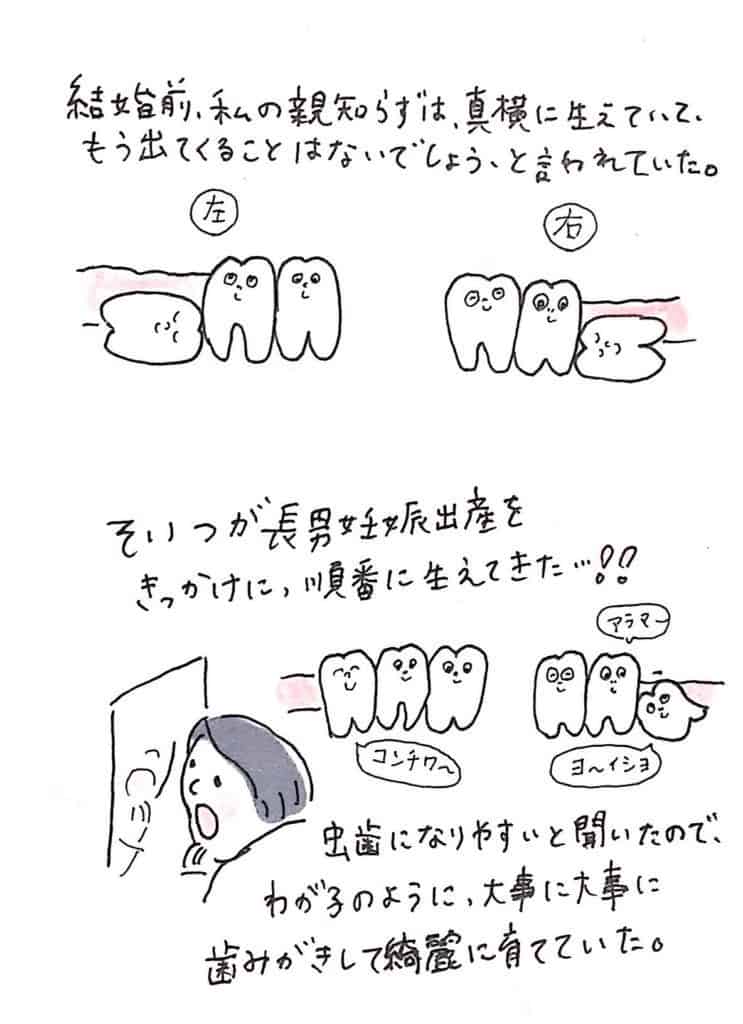 結婚前、私の親知らずは、真横に生えていて、
もう出てくることはないでしょう、と言われていた。
左
右
そいつが長男妊娠出産を
きっかけに、順番に生えてきた…!!
アラマー
コンチワ〜
ヨ〜イショ
虫歯になりやすいと聞いたので、
わが子のように、大事に大事に
歯みがきして綺麗に育てていた。